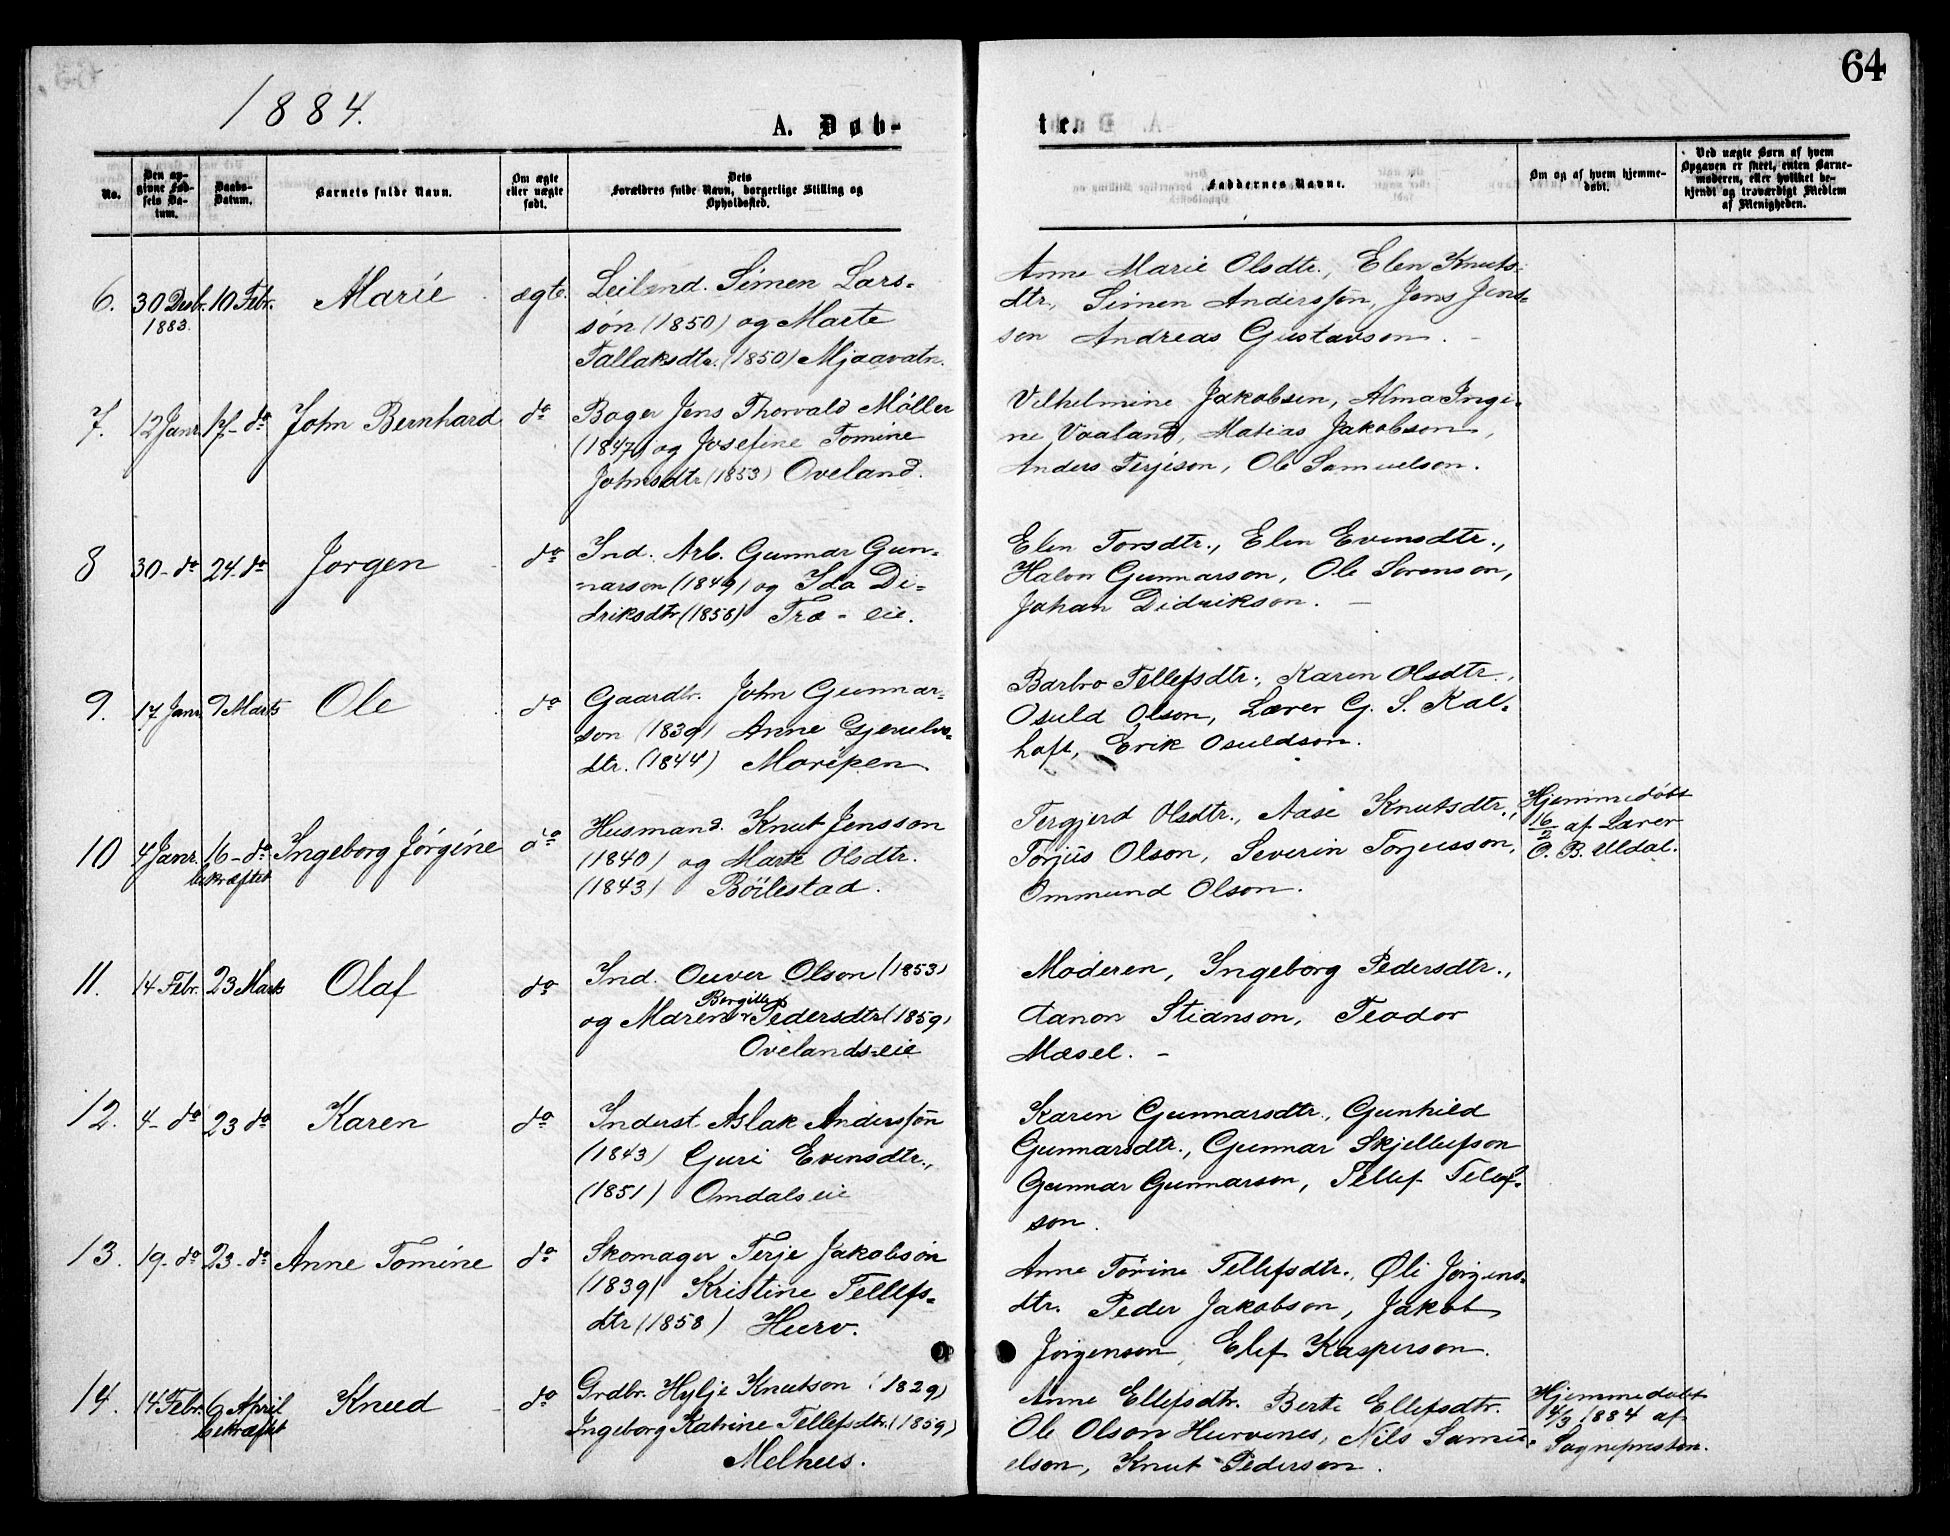 64
1884.
A. Døb-
ter.
No.
Den op-
givne Fød-
sels Da-
tum.
Daabs-
Datum.
Barnets fulde Navn.
Om ægte
eller uægte
født.
Dets
Forældres fulde Navn, borgerlige Stilling og
Opholdssted.
Faddernes Navne.
Om og af hvem hjemme-
døbt.
Ved uægte Børn af hvem
Opgaven er skeet, enten Barne-
moderen, eller hvilket be-
kjendt og troværdigt Medlem
af Menigheden.
6. 30 Decbr. 10 Febr. Marie ægte. Leilend. Simen Lars-
1883.
søn (1850) og Marte
Tallaksdtr. (1850) Mjaavatn.
Anne Marie Olsdtr., Elen Knuts-
dtr, Simen Anderssøn, Jens Jens-
son Andreas Gustavson. -
7. 12 Janr. 17- do John Bernhard do Bager Jens Thorvald Møller
(1847) og Josefine Tomine
Johnsdtr (1853) Oveland.
Vilhelmine Jakobsen, Alma Ingi-
ne Vaaland, Matias Jakobson,
Anders Terjeson, Ole Samuelson.
8 30- do 24- do Jørgen do Ind. Arb. Gunnar Gun-
narson (1849) og Ida Di-
driksdtr (1858) Træ - eie.
Elen Torsdtr., Elen Evensdtr.,
Halvor Gunnarson, Ole Sørenson,
Johan Didrikson. -
9. 17 Janr. 9 Marts Ole do Gaardbr. John Gunnar-
son (1839) Anne Gjerulvs-
dtr. (1844) Moripen
Barbro Tellefsdtr., Karen Olsdtr.,
Osuld Olson, Lærer G. S. Kal-
haft, Erik Osuldson.
10 4 Janr. 16- do Ingeborg Jørgine do Husmand. Knut Jensson
bekræftet
(1840) og Marte Olsdtr.
(1843) Böilestad.
Tergjerd Olsdtr., Aase Knutsdtr.,
Torjus Olson, Severin Torjusson,
Ommund Olson.
Hjemmedøbt
16/2 af Lærer
O. B. Uldal.
11. 14 Febr. 23 Marts Olaf do Ind. Ouver Olson (1853)
Borgille
og Maren Pedersdtr (1859)
Ovelands-eie
Moderen, Ingeborg Pedersdtr.,
Aanon Stianson, Teodor
Mæsel. -
12. 4- do 23 do Karen do Inderst. Aslak Anderssøn
(1843) Guri Evensdtr.,
(1851) Omdals eie
Karen Gunnarsdtr., Gunhild
Gunnarsdtr., Gunnar Skjellefson
Gunnar Gunnarson, Tellef Telef-
son.
13. 19- do 23- do Anne Tomine do Skomager Terje Jakobsøn
(1839) Kristine Tellefs-
dtr (1858) Hurv.
Anne Torine Tellefsdtr., Øli Jørgens-
dtr. Peder Jakobson, Jakob
Jörgenson, Elef Kasperson.
14. 14 Febr. 6 April Knud - do Grdbr. Hylje Knutson (1829)
bekræftet
Ingeborg Katrine Tellefsdtr. (1859)
Melhus.
Anne Ellefsdtr. Berte Ellefsdtr.
Ole Olson Hurvenes, Nils Samu-
elson, Knut Pederson.
Hjemmedøbt
4/3 1884 af
Sognepresten.